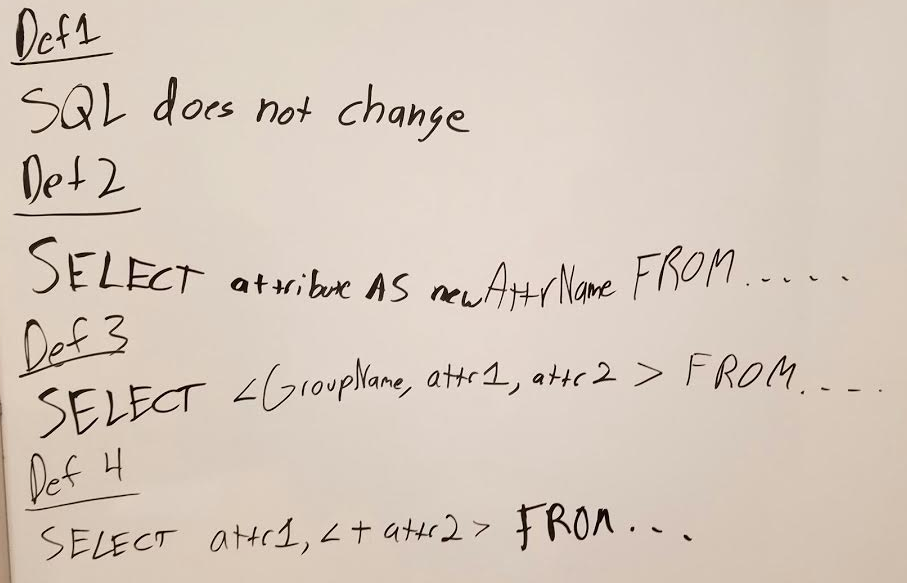 Def1
SQL does not change
Def 2
SELECT attribute AS newAttrName FROM.....
Def 3
SELECT <GroupName, attr1, attr2 > FROM....
Def 4
SELECT attr1, <+ attr2> FROM...